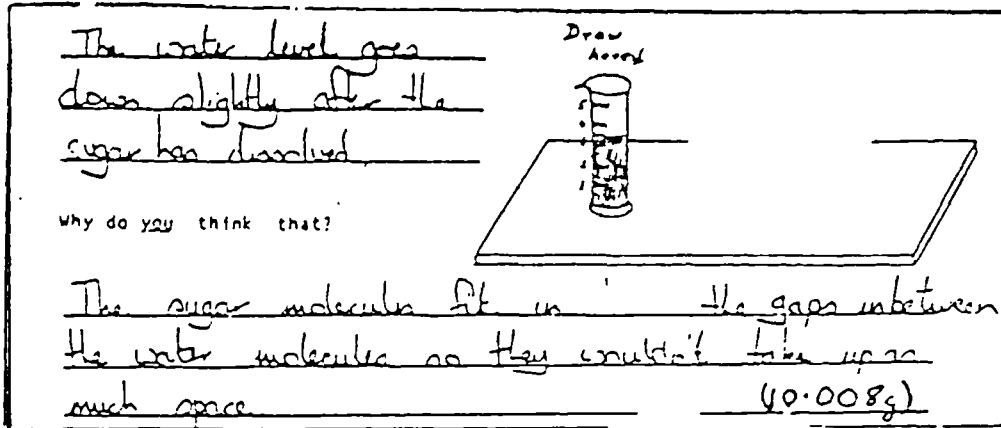 The water level goes
down slightly after the
sugar has dissolved.
Draw
Why do you think that?
The sugar molecules fit in the gaps inbetween
the water molecules so they wouldn't take up as
much space
(40.008g)